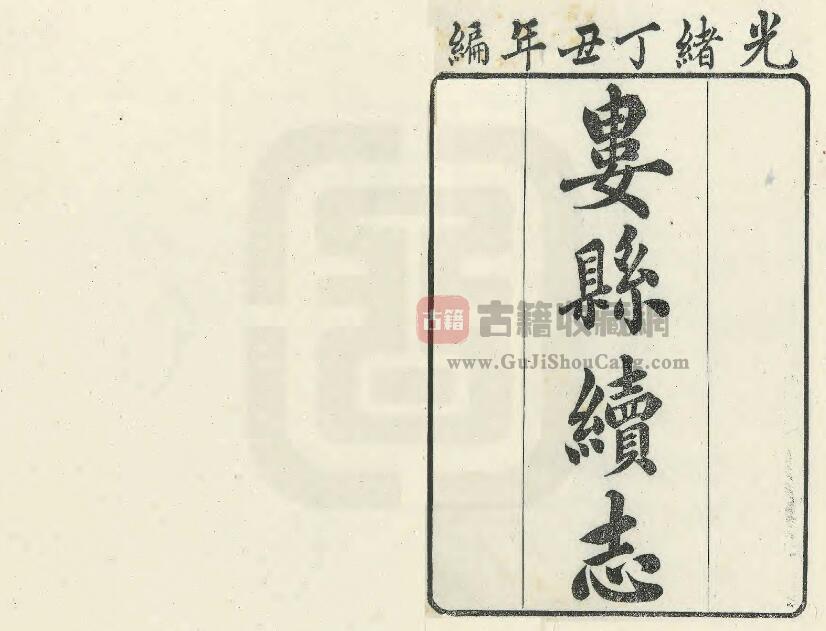 光緒丁丑年編
婁縣續志
古籍
古籍收藏網
www.GuJiShouCang.com